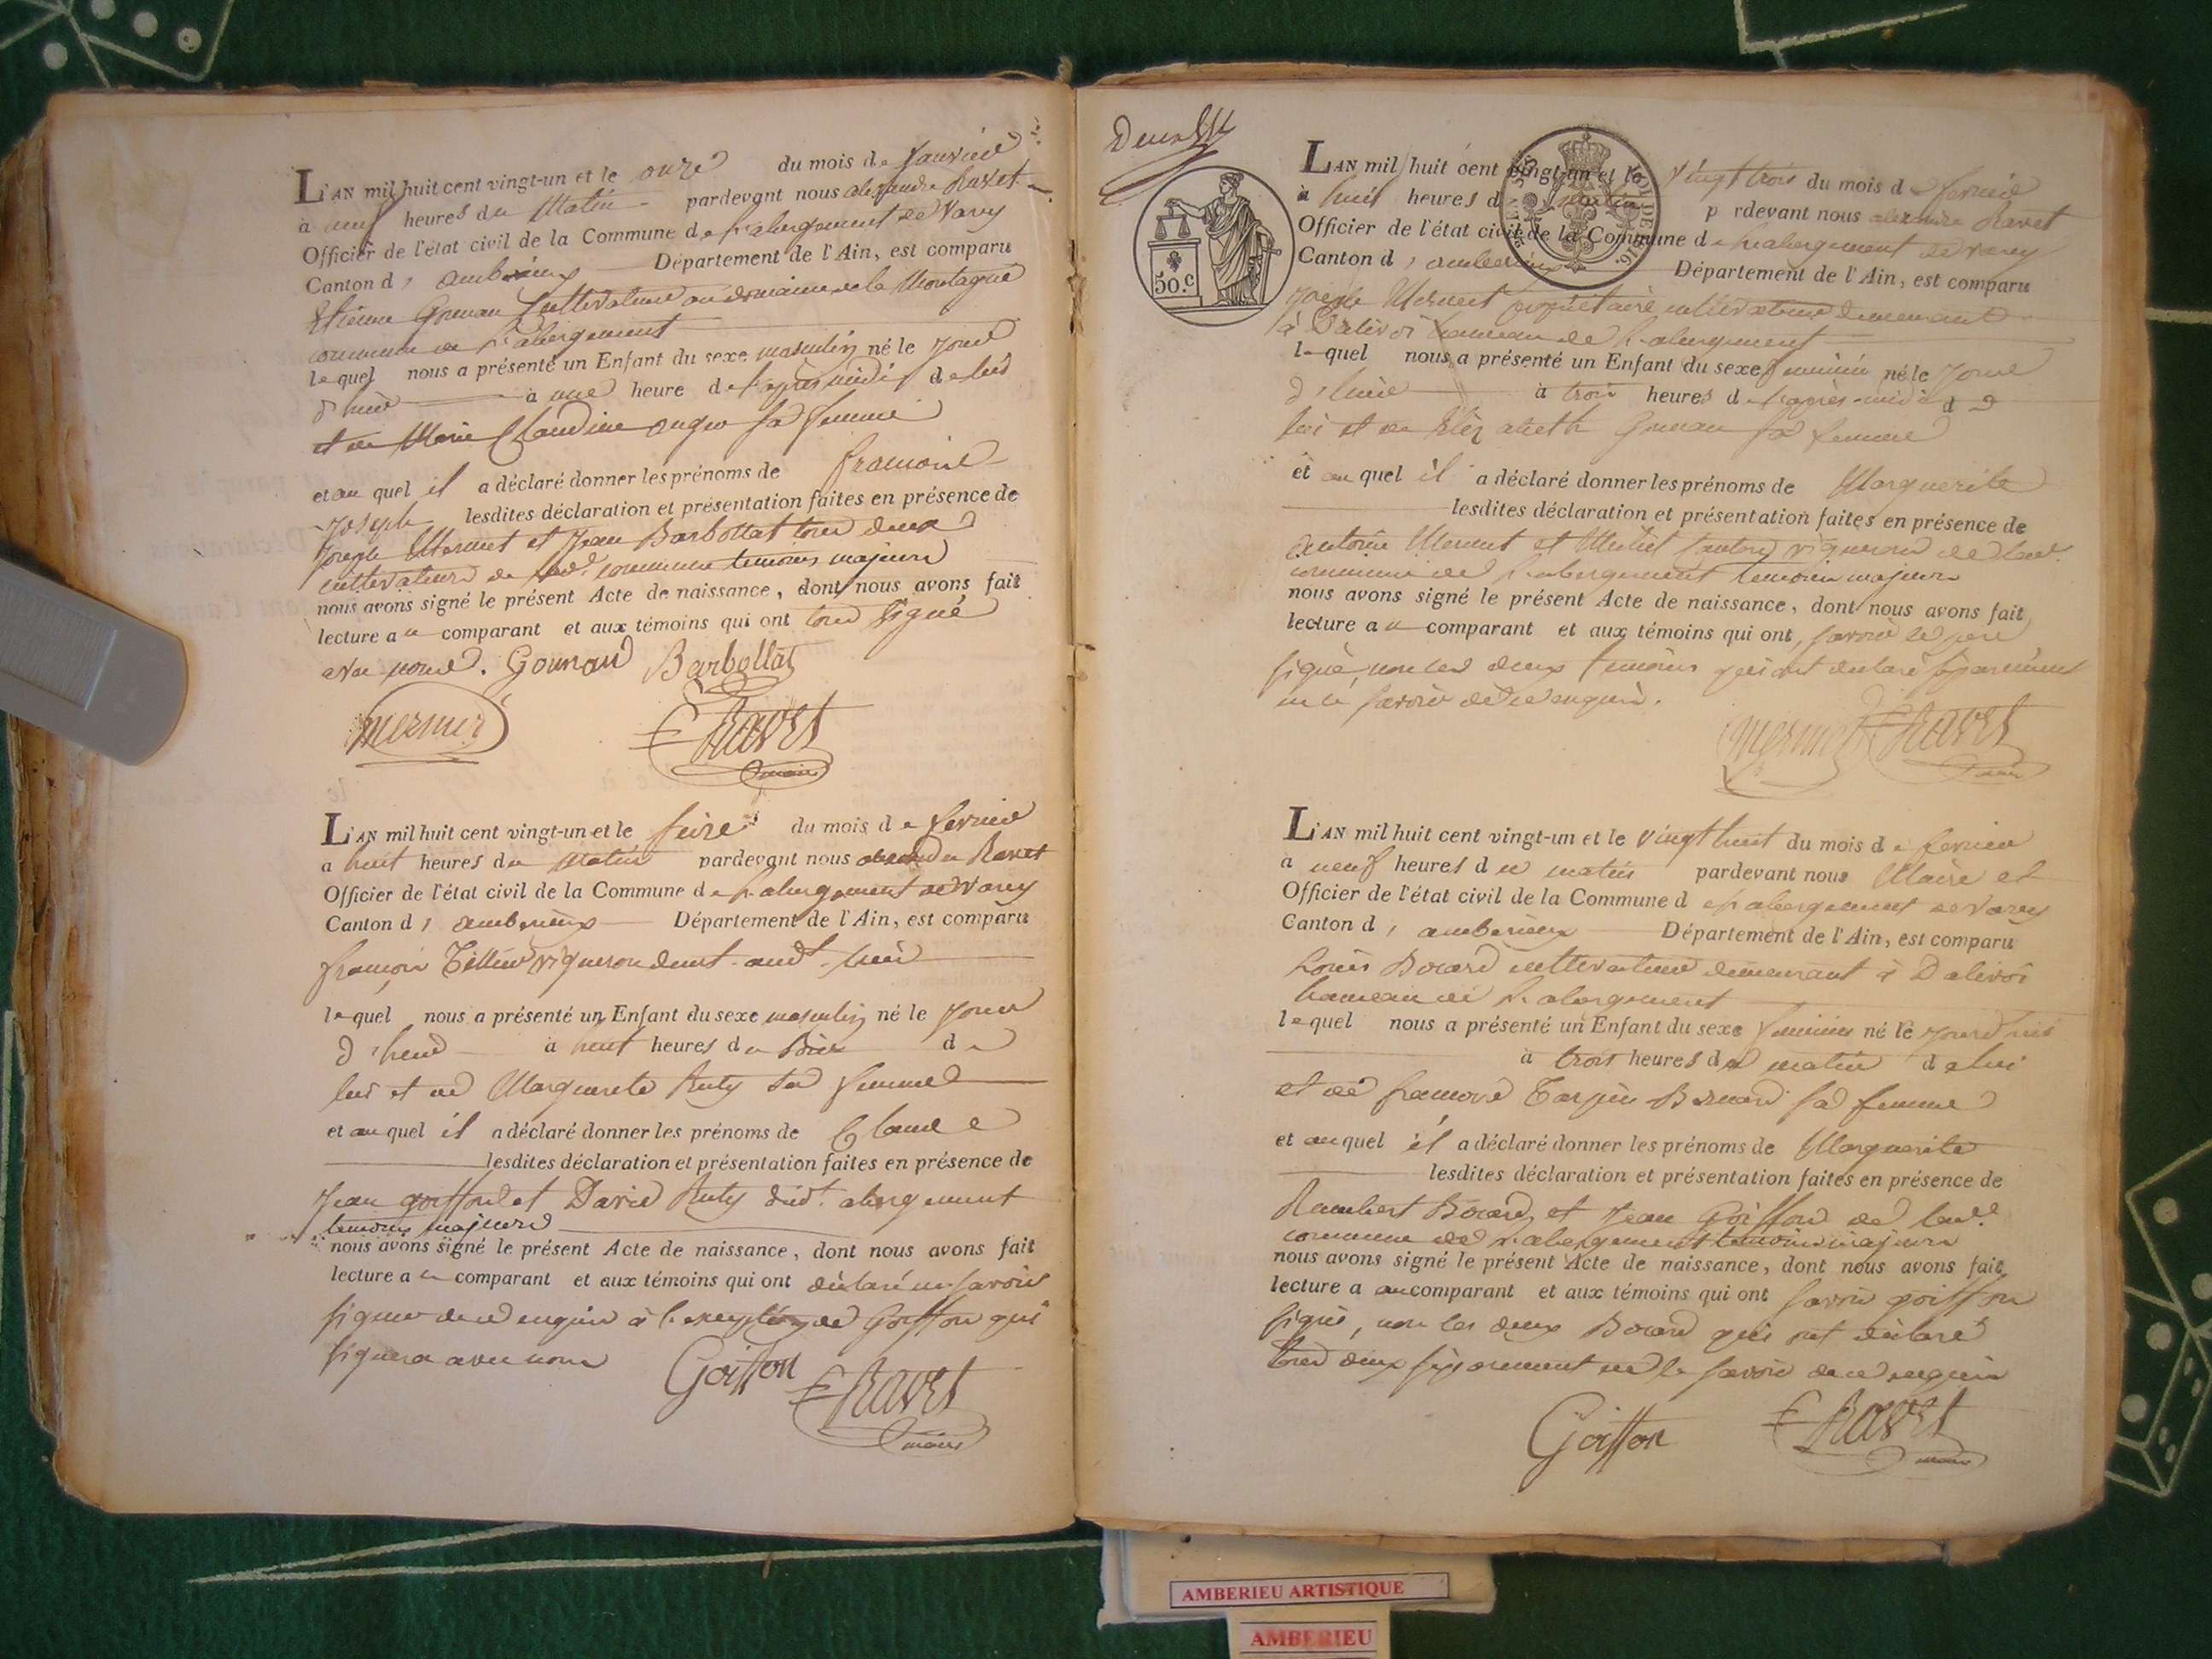 L'AN mil huit cent vingt-un et le onze du mois de Janvier
à neuf heures du Matin pardevant nous alexandre Ravet
Officier de l'état civil de la Commune de L'abergement de Varey
Canton d' amberieux Département de l'Ain, est comparu
Etienne Gounan Cultivateur au domaine de la Montagne
commune de L'abergement
lequel nous a présenté un Enfant du sexe masculin né le Jour
d'hier à une heure de l'après midi de lui
et de Marie Claudine sa femme
et au quel il a déclaré donner les prénoms de françois
Joseph lesdites déclaration et présentation faites en présence de
Joseph Mermet et Jean Barbollat tous deux
cultivateurs de lad. commune temoins majeurs
nous avons signé le présent Acte de naissance, dont nous avons fait
lecture au comparant et aux témoins qui ont tous signé
avec nous. Gounan Barbollat
mermet Ravet
maire
L'AN mil huit cent vingt-un et le seize du mois de fevrier
a huit heures du Matin pardevant nous alexandre Ravet
Officier de l'état civil de la Commune de L'abergement de Varey
Canton d' amberieux Département de l'Ain, est comparu
françois Tillier vigneron demt. audt. lieu
lequel nous a présenté un Enfant du sexe masculin né le Jour
d'hier à huit heures du Soir de
lui et de Marguerite Ruty sa femme
et au quel il a déclaré donner les prénoms de Claude
lesdites déclaration et présentation faites en présence de
Jean goiffon et David Ruty dudt. abergement
temoins majeurs
nous avons signé le présent Acte de naissance, dont nous avons fait
lecture au comparant et aux témoins qui ont déclaré ne savoir
signer de ce enquis à l'exception de Goiffon qui
signera avec nous Goiffon Ravet
maire
50.c
L'AN mil huit cent vingt-un et le vingt trois du mois de fevrier
à huit heures du matin p rdevant nous alexandre Ravet
Officier de l'état civil de la Commune de L'abergement de Varey
Canton d' amberieux Département de l'Ain, est comparu
Joseph Mermet propriétaire cultivateur demeurant
à Dalivoi hameau de L'abergement
lequel nous a présenté un Enfant du sexe feminin né le Jour
d'hier à trois heures de l'après-midi de
lui et de Elizabeth Gounan sa femme
et au quel il a déclaré donner les prénoms de Marguerite
lesdites déclaration et présentation faites en présence de
Antoine Mermet et vignerons de lad.
commune de L'abergement temoins majeurs
nous avons signé le présent Acte de naissance, dont nous avons fait
lecture au comparant et aux témoins qui ont, savoir le pere
signé, non les deux temoins qui ont déclaré séparément
ne le savoir de ce enquis.
mermet Ravet
maire
L'AN mil huit cent vingt-un et le vingt huit du mois de fevrier
a neuf heures du matin pardevant nous Maire et
Officier de l'état civil de la Commune d eL'abergement de Varey
Canton d' amberieux Département de l'Ain, est comparu
Louis Bocard cultivateur demeurant à Dalivoi
hameau de L'abergement
lequel nous a présenté un Enfant du sexe feminin né le jourd'hui
à trois heures du matin de lui
et de françoise Tarpin Bernard sa femme
et auquel il a déclaré donner les prénoms de Marguerite
lesdites déclaration et présentation faites en présence de
Rambert Bocard et Jean Goiffon de lad.
commune de L'abergement temoins majeurs
nous avons signé le présent Acte de naissance, dont nous avons fait
lecture a au comparant et aux témoins qui ont savoir goiffon
signé, non les deux Bocard qui ont déclaré
tous deux séparement ne le savoir de ce enquis
Goiffon Ravet
maire
AMBERIEU ARTISTIQUE
AMBERIEU